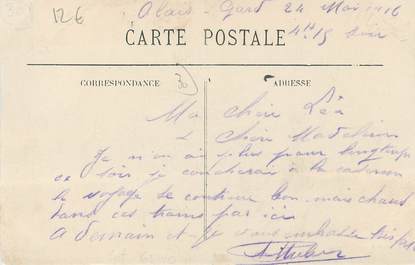 12€
Alais - Gard 24 Mai 1916
4H 15 soir
CARTE POSTALE
CORRESPONDANCE
30
ADRESSE
Ma chère Léa
& chère
Je n'en ai plus pour longtemps
ce soir je coucherai à la caserne
le voyage se continue bon mais chaud
dans ces trains par ici
A demain et je vous embrasse